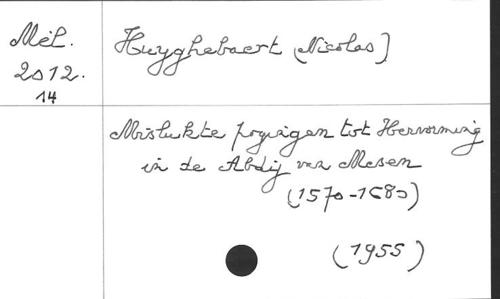 Mél.
2012.
14
Huyghebaert (Nicolas)
Mislukte pogingen tot Hervorming
in de Abdij van Mesen
(1570-1680)
(1955)